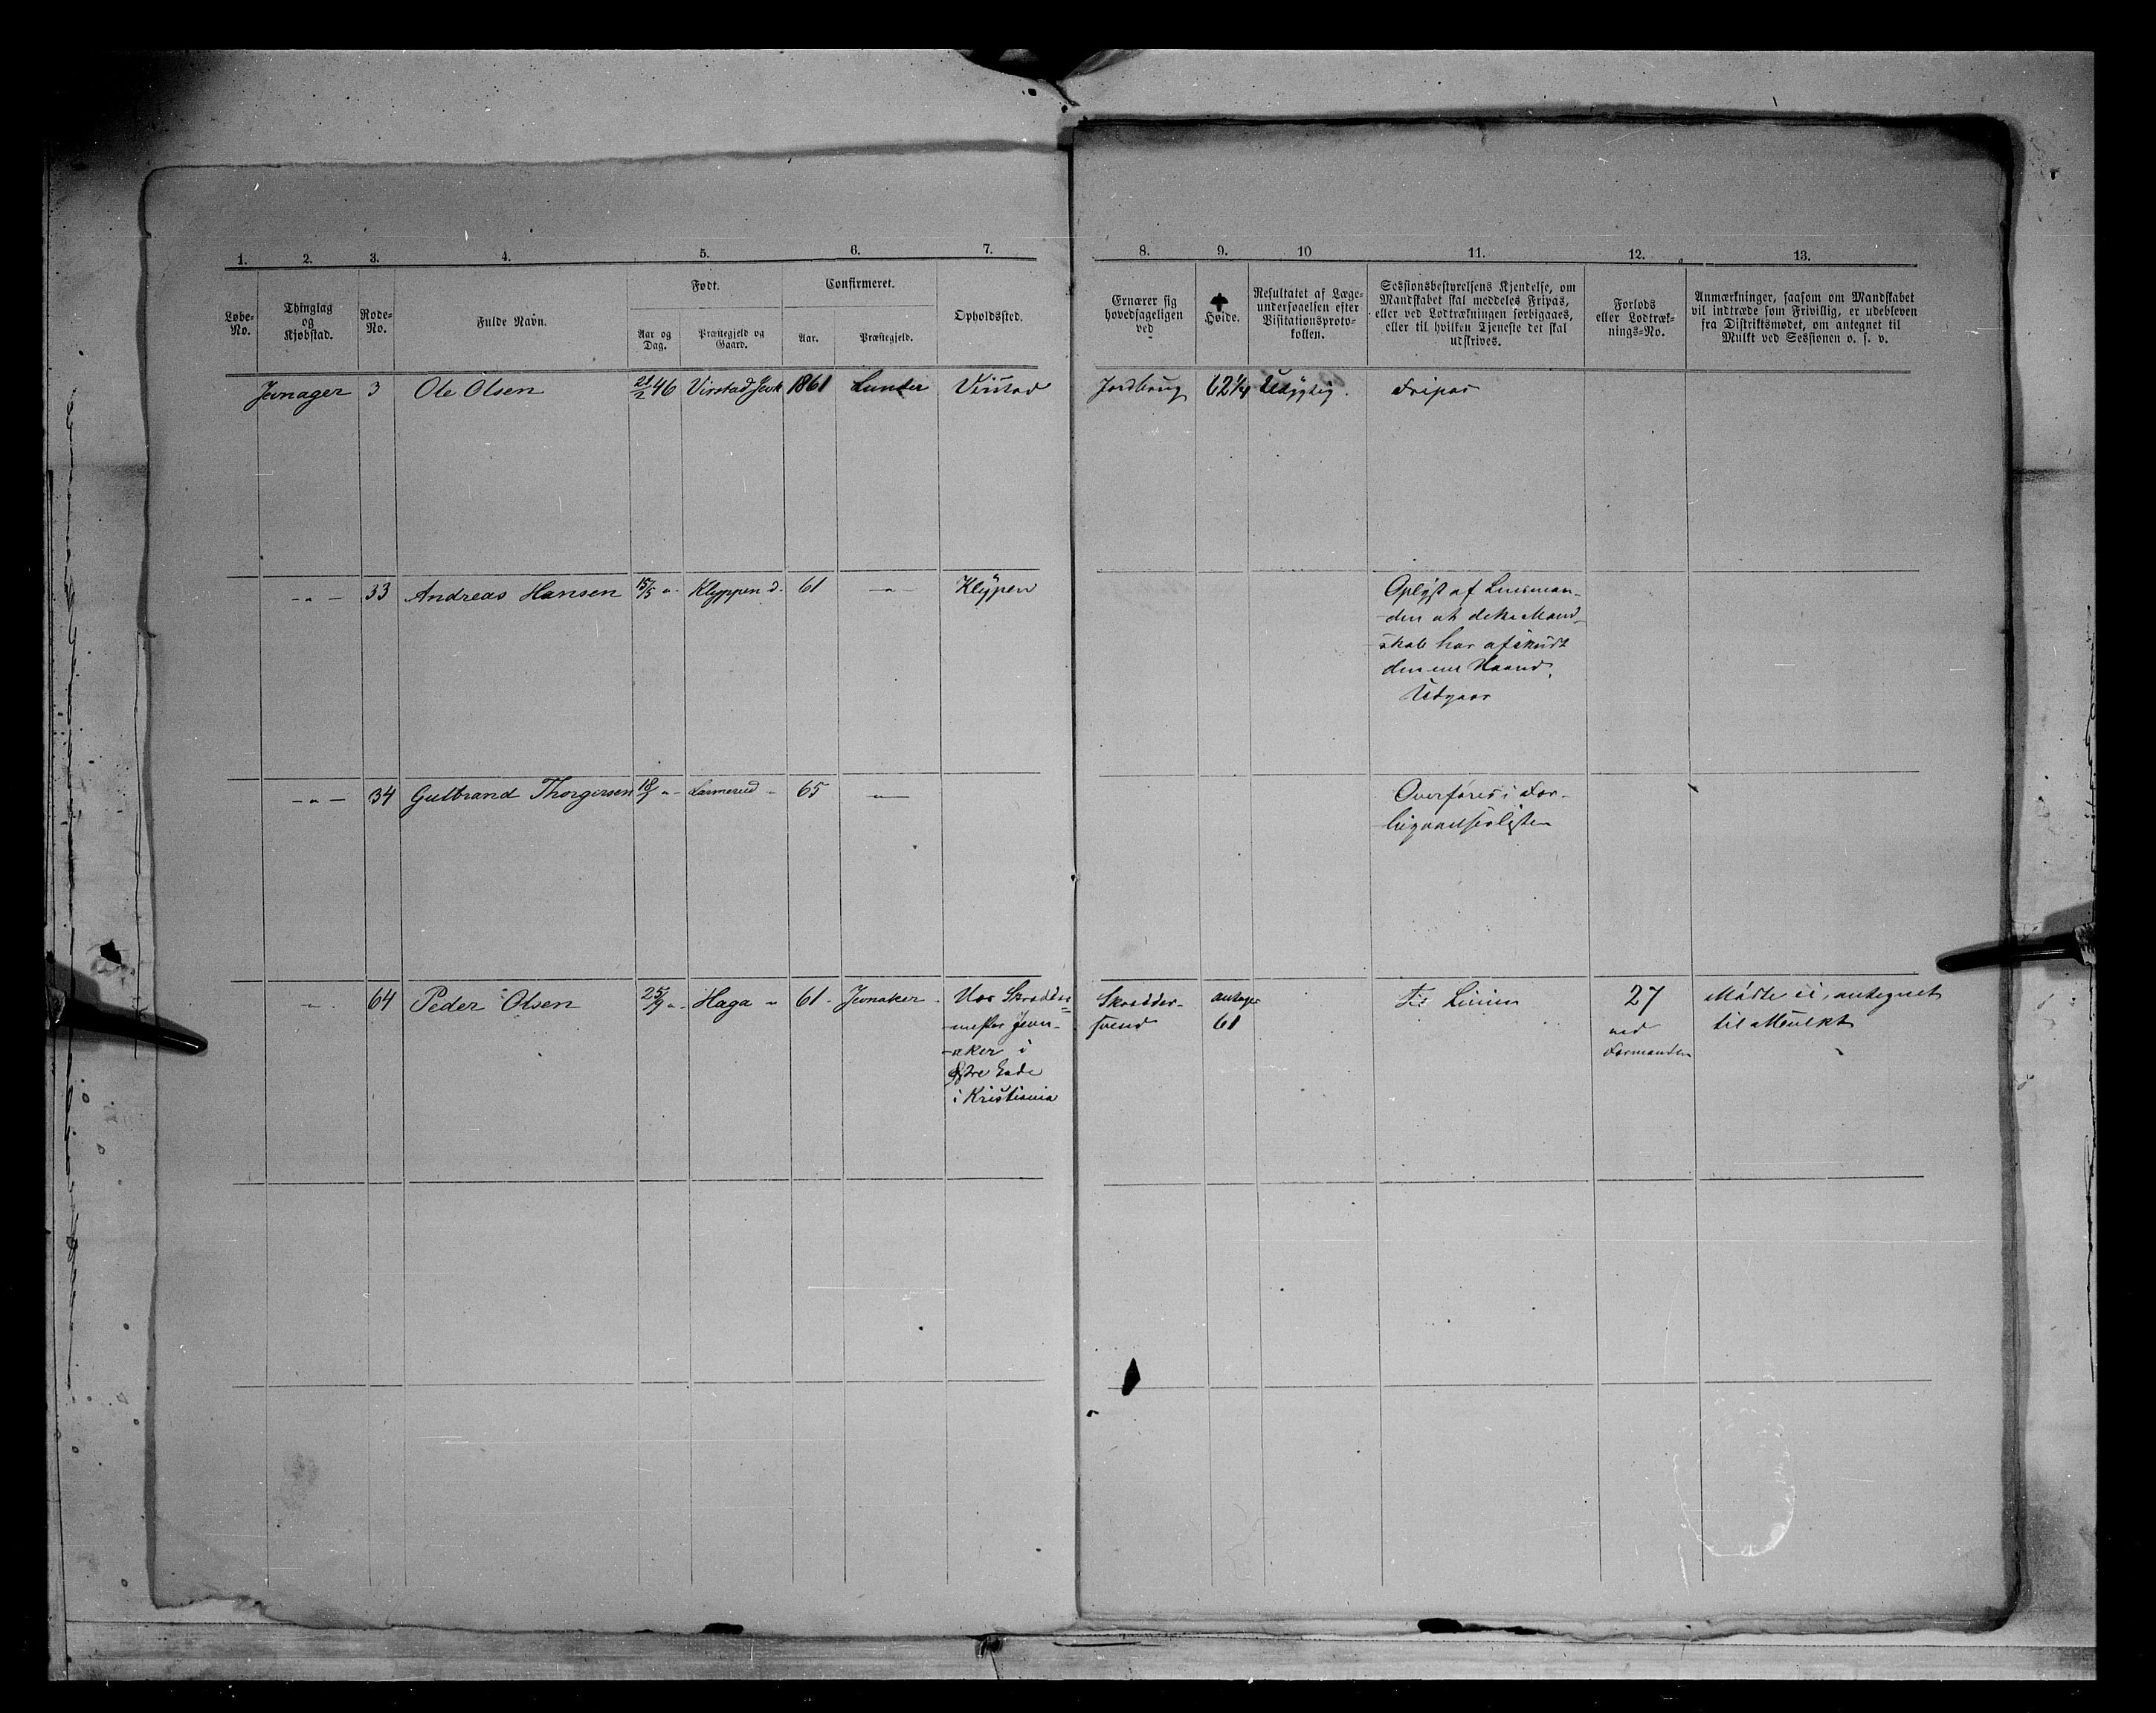 1. 2. 3. 4. 5. 6. 7. 8. 9. 10 11. 12. 13.
Løbe-
No.
Thinglag
og
Kjøbstad.
Rode-
No.
Fulde Navn.
Født.
Aar og
Dag.
Præstegjeld og
Gaard.
Confirmeret.
Aar.
Præstegjeld.
Opholdssted.
Ernærer sig
hovedsageligen
ved
Høide.
Resultatet af Læge-
undersøgelsen efter
Visitationsproto-
kollen.
Sessionsbestyrelsens Kjendelse, om
Mandskabet skal meddeles Fripas,
eller ved Lodtrækningen forbigaaes,
eller til hvilken Tjeneste det skal
udskrives.
Forlods
eller Lodtræk-
nings-No.
Anmærkninger, saasom om Mandskabet
vil indtræde som Frivillig, er udebleven
fra Distriktsmødet, om antegnet til
Mulkt ved Sessionen o. s. v.
Jevnager 3 Ole Olsen 21/2 46 Virstad Jevk 1861 Lunder Virstad Jordbrug 62 1/4 Udygtig. Fripas
-„- 33 Andreas Hansen 15/5 „- Klyppen d. 61 -„- Klypen
Oplyst af Lensman-
den at dette Mand-
skab har afskudt
den ene Haand.
Udgaar
-„- 34 Gulbrand Thorgersen 18/7 „- Larmerud - 65 -„-
Overføres i For-
bigaaelseslisten
-„- 64 Peder Olsen 25/9 „- Haga „ 61 - Jevnaker -
Hos Skrædder-
mester Jevn-
aker i
Østre Gade
i Kristiania
Skrædder-
svend
antager
61
Til Linien
27
ved
Formanden
Mødte ei, antegnet
til Mulkt